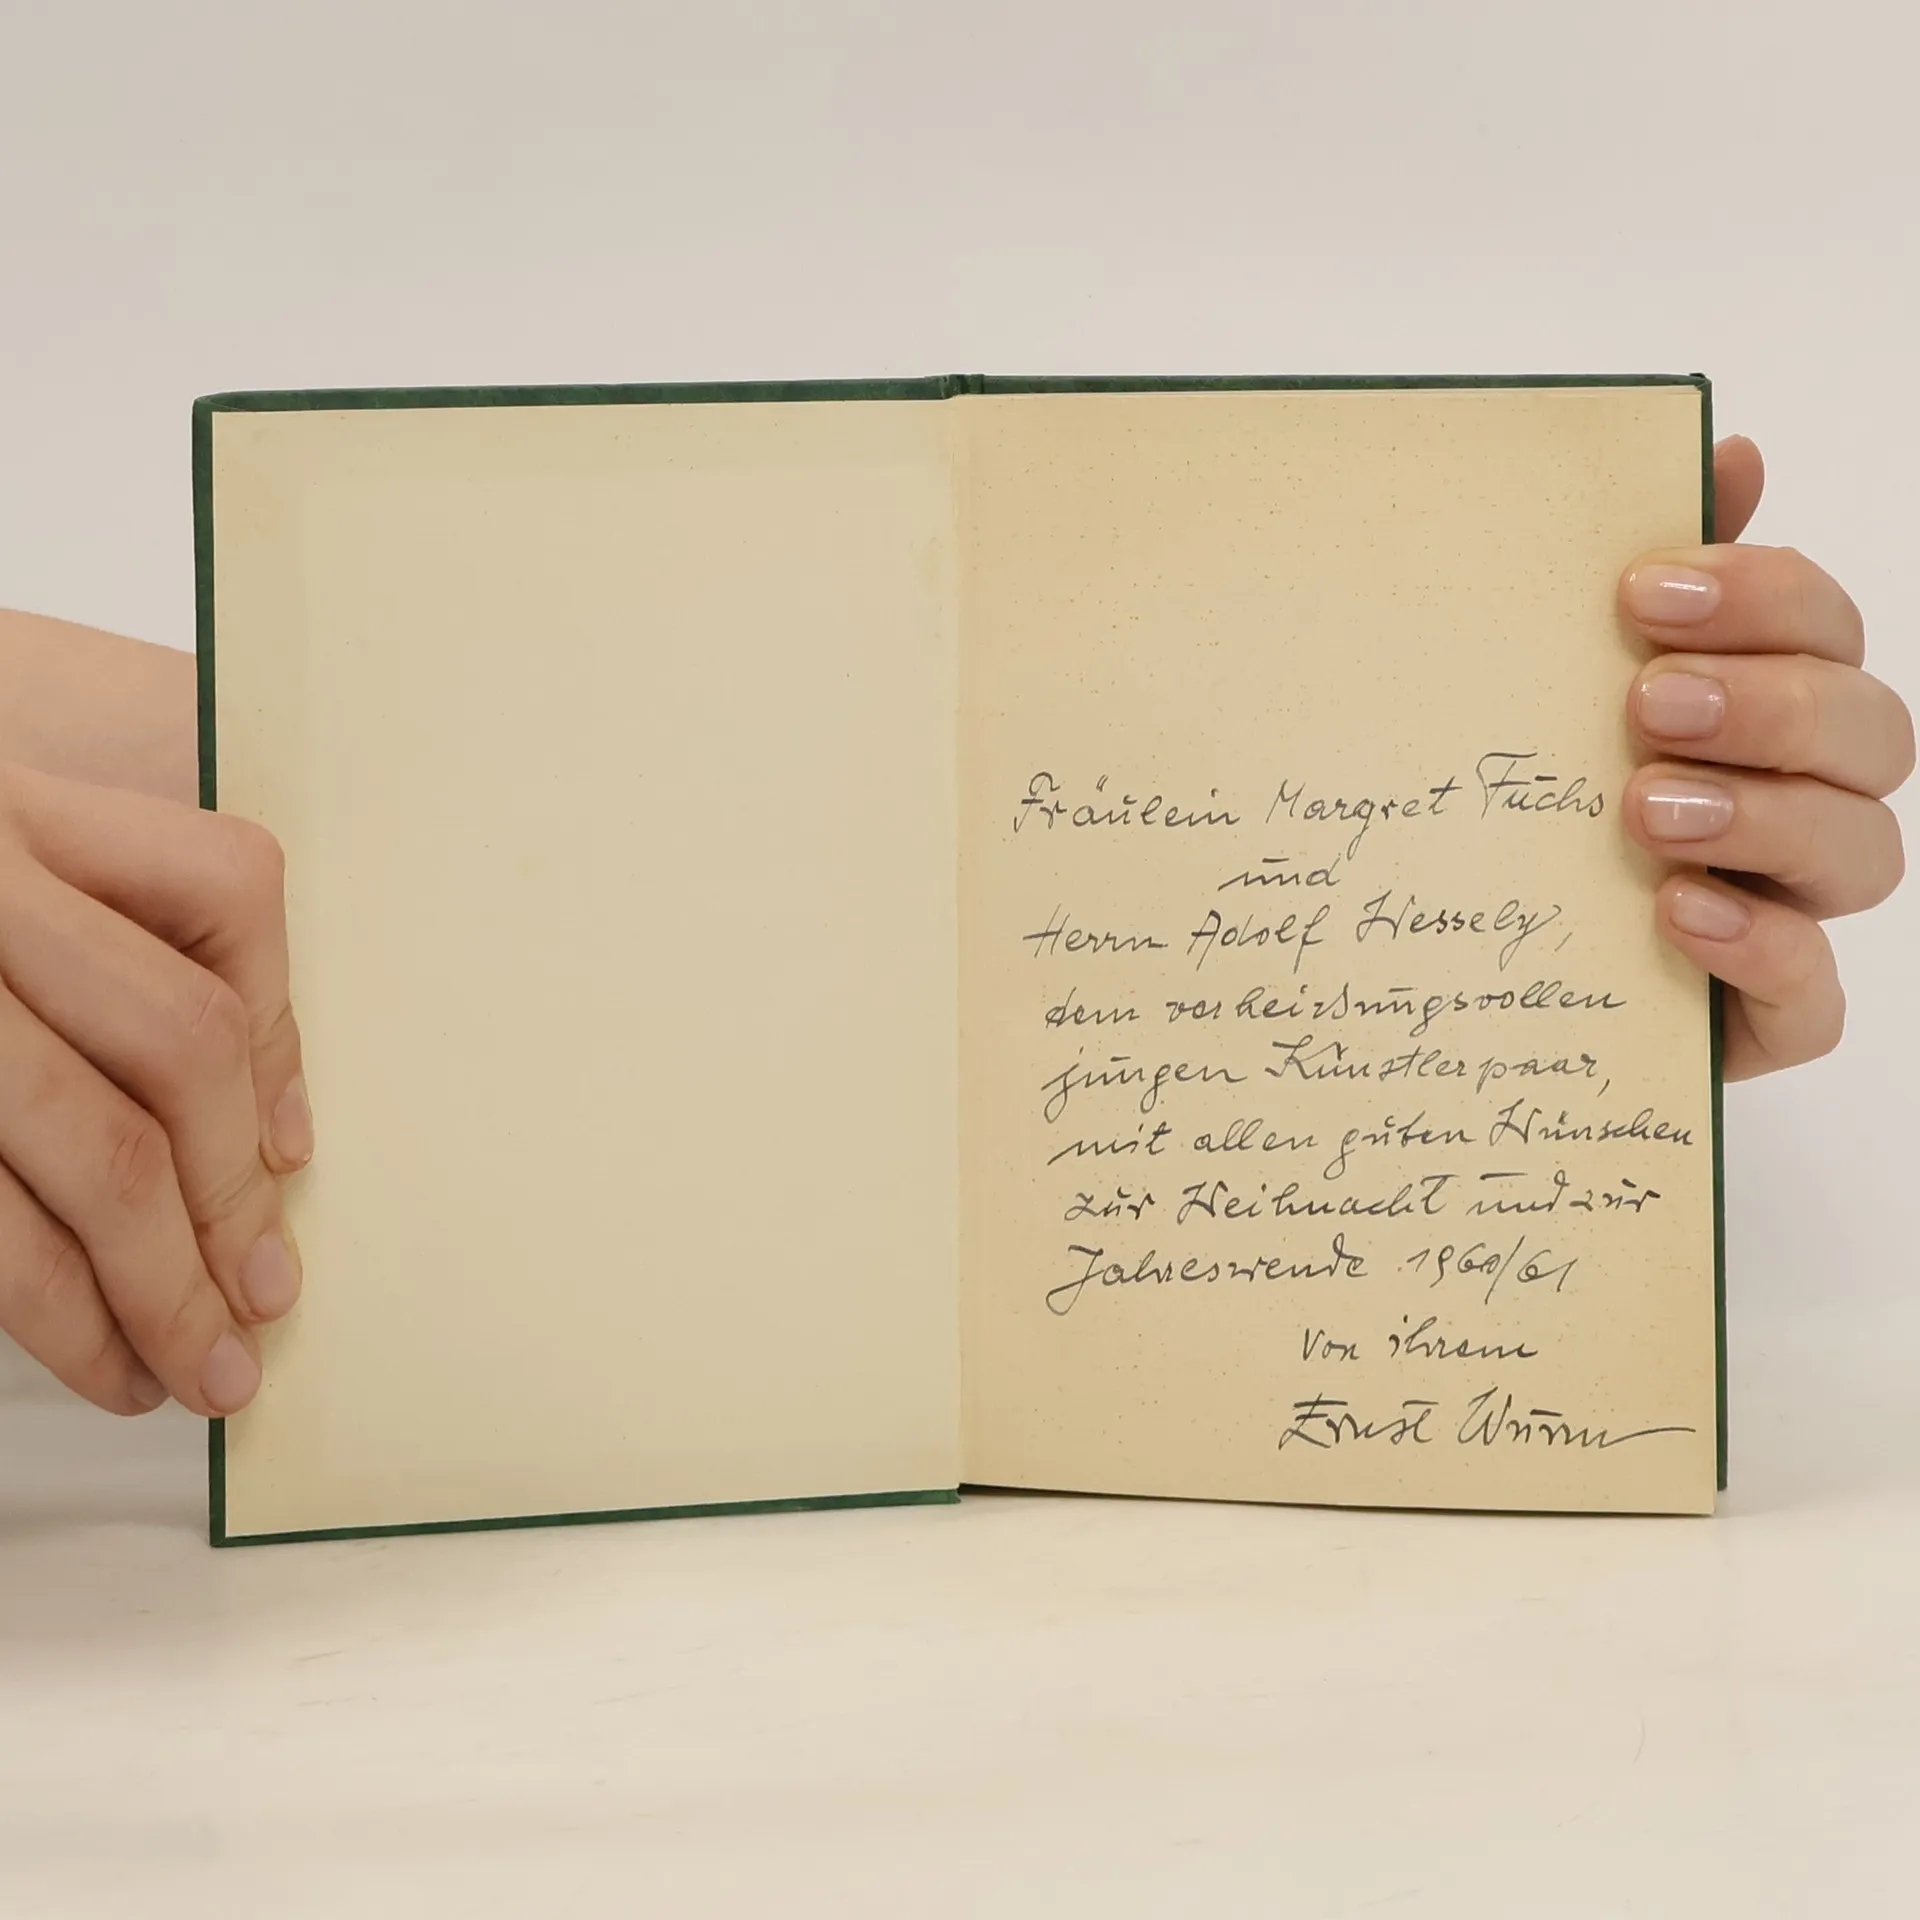 Fräulein Margret Fuchs
und
Herrn Adolf Wessely,
dem verheißungsvollen
jungen Künstlerpaar,
mit allen guten Wünschen
zur Weihnacht und zur
Jahreswende 1960/61
von ihrem
Ernst Wurm